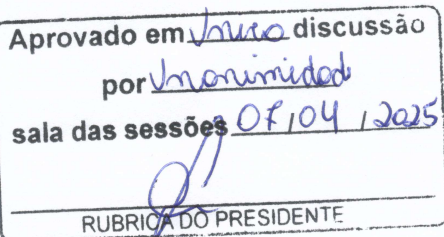 Aprovado em única discussão
por Unanimidad
sala das sessões 07/04/2025
RUBRICA DO PRESIDENTE